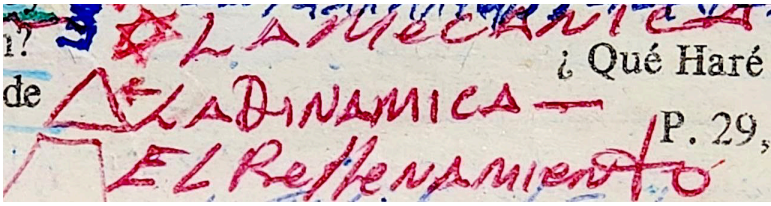 n? LA MeCANICA
¿ Qué Haré
de LA DINAMICA —
P. 29,
EL RellenAMIenTo